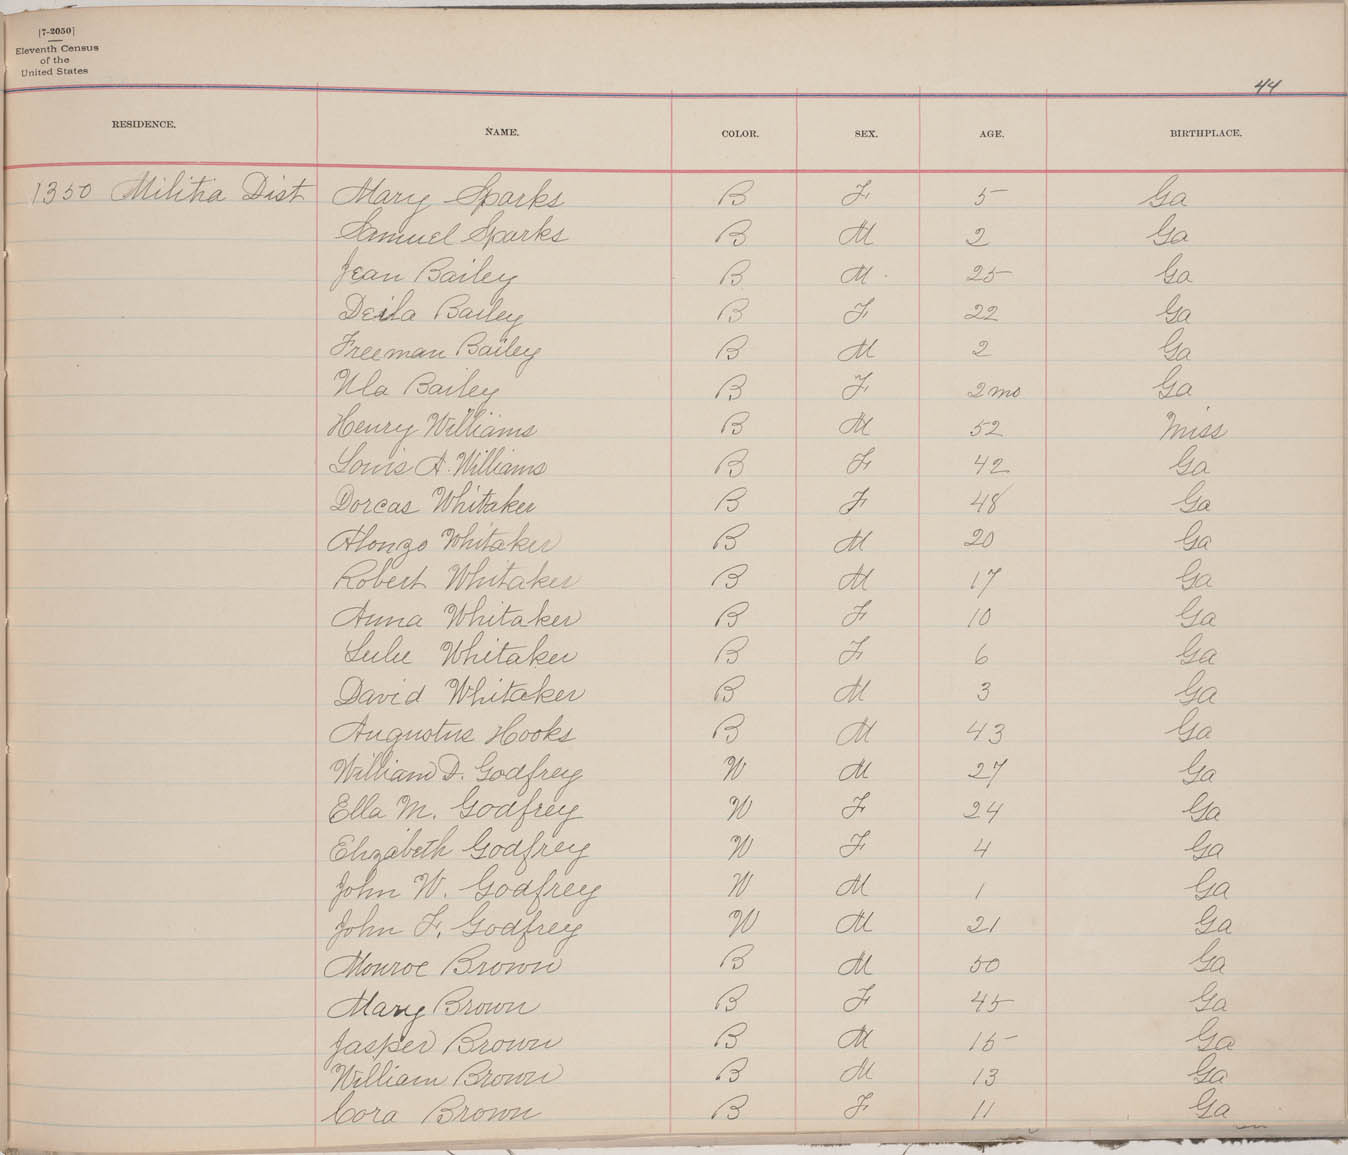 [7-2050]
Eleventh Census
of the
United States
44
RESIDENCE. NAME. COLOR. SEX. AGE. BIRTHPLACE.
1350 Militia Dist Mary Sparks B F 5 Ga
Samuel Sparks B M 2 Ga
Jean Bailey B M 25 Ga
Deila Bailey B F 22 Ga
Freeman Bailey B M 2 Ga
Ula Bailey B F 2 mo Ga
Henry Williams B M 52 Miss
Louis A. Williams B F 42 Ga
Dorcas Whitaker B F 48 Ga
Alonzo Whitaker B M 20 Ga
Robert Whitaker B M 17 Ga
Anna Whitaker B F 10 Ga
Lulu Whitaker B F 6 Ga
David Whitaker B M 3 Ga
Augustus Hooks B M 43 Ga
William D. Godfrey W M 27 Ga
Ella M. Godfrey W F 24 Ga
Elizabeth Godfrey W F 4 Ga
John W. Godfrey W M 1 Ga
John F. Godfrey W M 21 Ga
Monroe Brown B M 50 Ga
Mary Brown B F 45 Ga
Jasper Brown B M 15 Ga
William Brown B M 13 Ga
Cora Brown B F 11 Ga